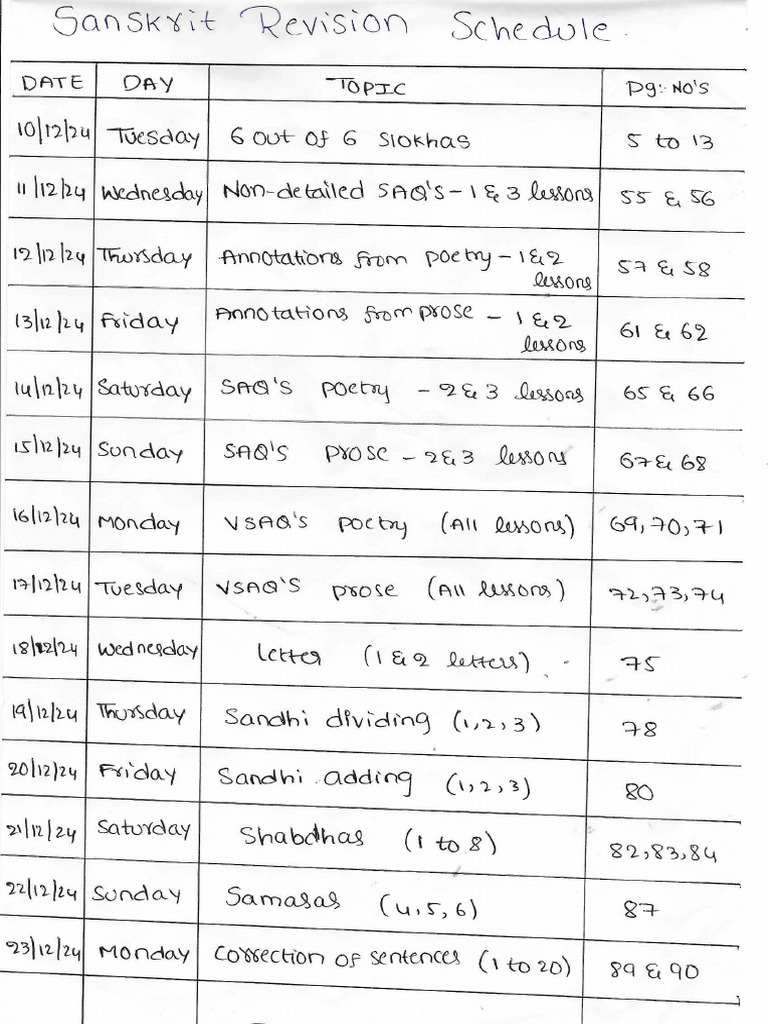 Sanskrit Revision Schedule.
DATE DAY TOPIC Pg:- NO'S
10/12/24 Tuesday 6 out of 6 Slokhas 5 to 13
11/12/24 Wednesday Non-detailed SAQ'S - 1 & 3 lessons 55 & 56
12/12/24 Thursday Annotations from poetry - 1 & 2
lessons 57 & 58
13/12/24 Friday Annotations from prose - 1 & 2
lessons 61 & 62
14/12/24 Saturday SAQ'S poetry - 2 & 3 lessons 65 & 66
15/12/24 Sunday SAQ'S prose - 2 & 3 lessons 67 & 68
16/12/24 Monday VSAQ'S poetry (All lessons) 69, 70, 71
17/12/24 Tuesday VSAQ'S prose (All lessons) 72, 73, 74
18/12/24 Wednesday letter (1 & 2 letters) 75
19/12/24 Thursday Sandhi dividing (1, 2, 3) 78
20/12/24 Friday Sandhi adding (1, 2, 3) 80
21/12/24 Saturday Shabdhas (1 to 8) 82, 83, 84
22/12/24 Sunday Samasas (4, 5, 6) 87
23/12/24 Monday Correction of sentences (1 to 20) 89 & 90